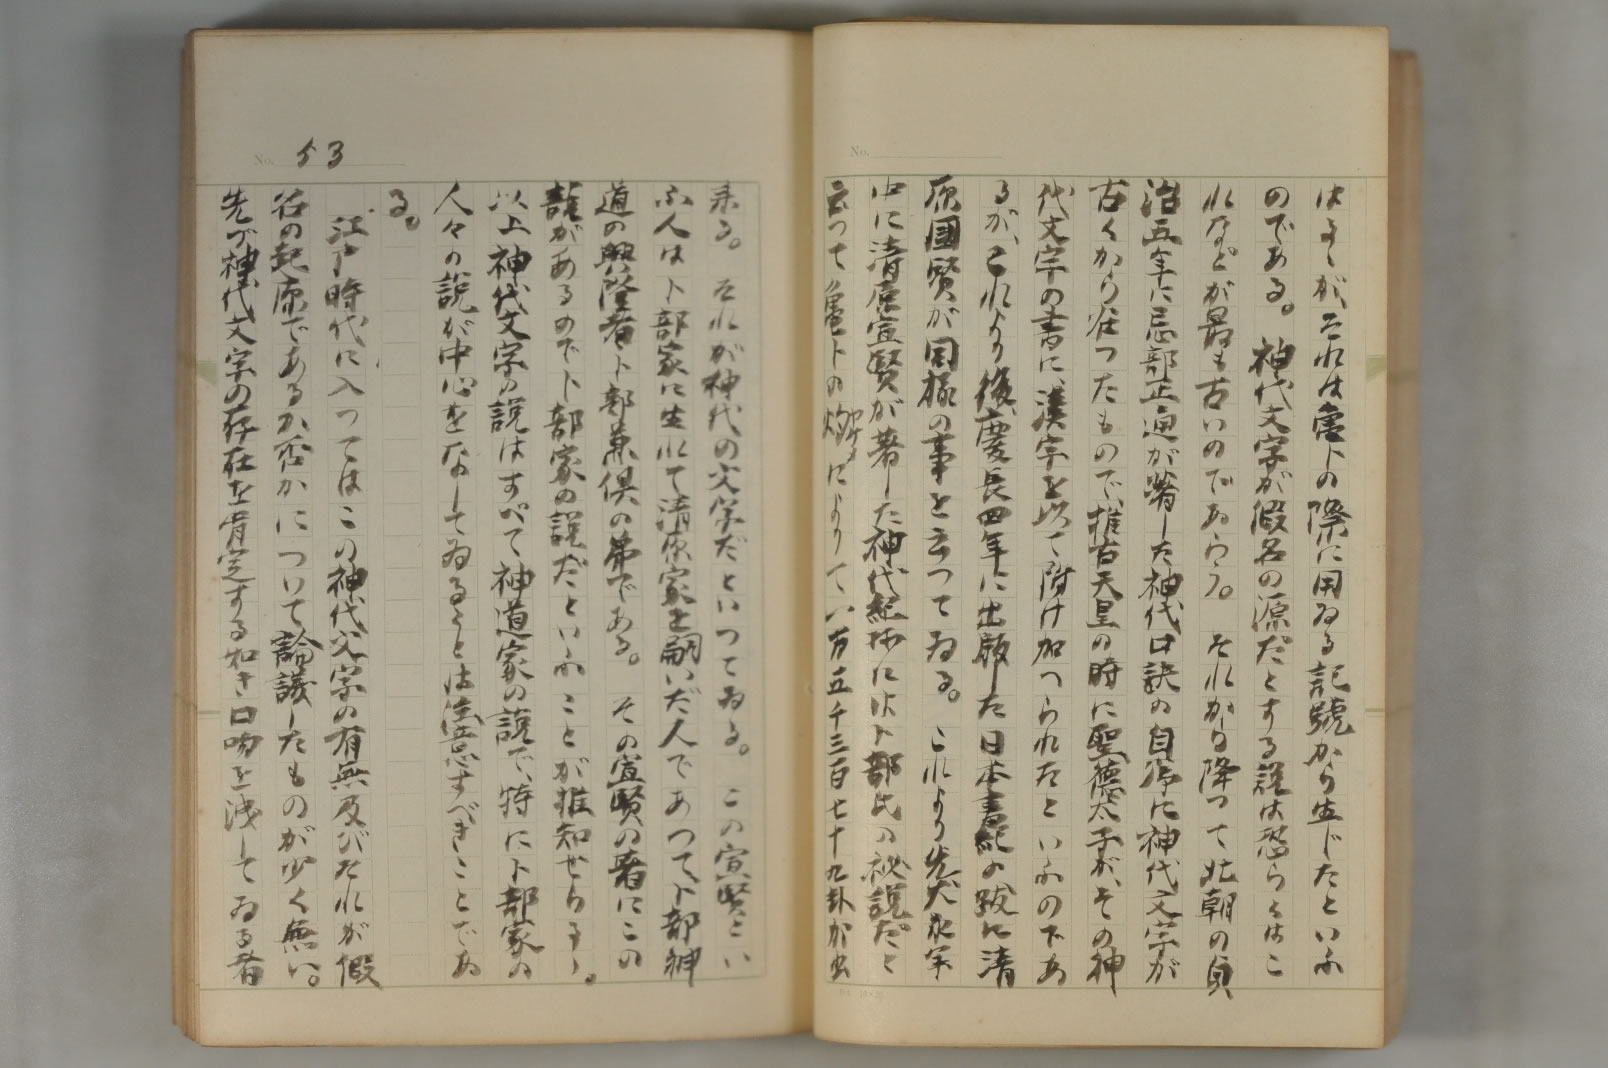 はるゝが、それは龜卜の際に用ゐる記號から生じたといふ
のである。神代文字が假名の源だとする説は恐らくはこ
れなどが最も古いのであらう。それから降つて北朝の貞
治五年に忌部正通が著した神代口訣の自序に神代文字が
古くから在つたもので、推古天皇の時に聖德太子が、その神
代文字の書に、漢字を以て附け加へられたといふのであ
るが、これより後、慶長四年に出版した日本書紀の跋に清
原國賢が同樣の事を云つてゐる。これより先大永年
中に清原宣賢が著した神代紀抄には卜部氏の秘説だと
云つて龜卜の灼ヤケメによりて一万五千三百七十九卦が出
來る。それが神代の文字だといつてゐる。この宣賢とい
ふ人は卜部家に生れて清原家を嗣いだ人であつて、卜部神
道の興隆者卜部兼倶の弟である。その宣賢の著にこの
説があるので卜部家の説だといふことが推知せらるゝ。
以上神代文字の説はすべて神道家の説で、特に卜部家の
人々の説が中心をなしてゐることは注意すべきことであ
る。
No. 53
江戸時代に入つてはこの神代文字の有無及びそれが假
名の起原であるか否かについて論議したものが少く無い。
先づ神代文字の存在を肯定する如き口吻を洩してゐる者
No.